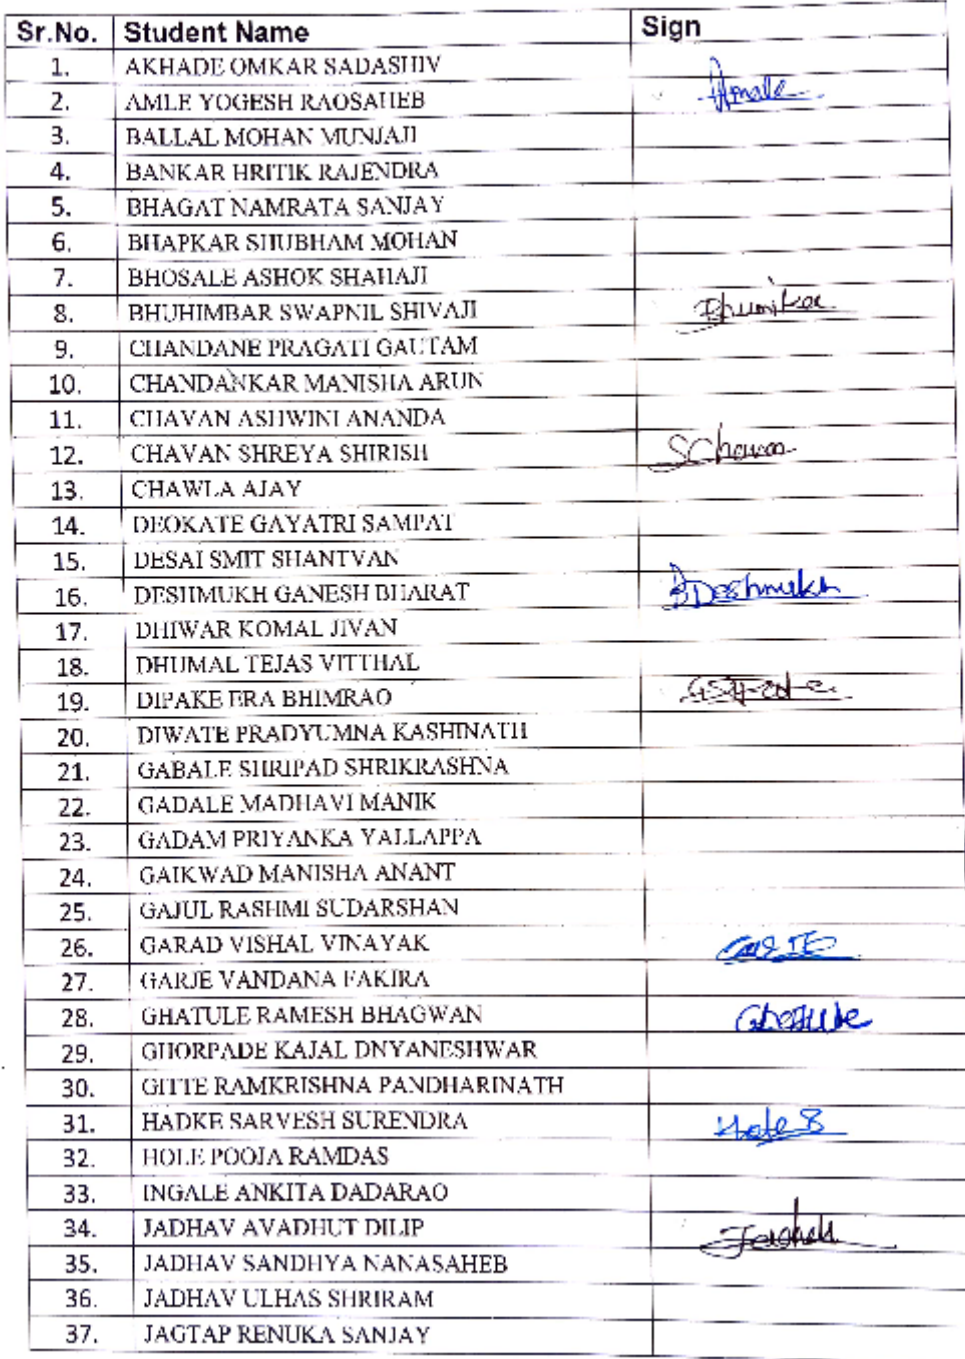 Sr.No. Student Name Sign
1. AKHADE OMKAR SADASHIV
2. AMLE YOGESH RAOSAHEB
3. BALLAL MOHAN MUNJAJI
4. BANKAR HRITIK RAJENDRA
5. BHAGAT NAMRATA SANJAY
6. BHAPKAR SHUBHAM MOHAN
7. BHOSALE ASHOK SHAHAJI
8. BHUHIMBAR SWAPNIL SHIVAJI
9. CHANDANE PRAGATI GAUTAM
10. CHANDANKAR MANISHA ARUN
11. CHAVAN ASHWINI ANANDA
12. CHAVAN SHREYA SHIRISH SChavan
13. CHAWLA AJAY
14. DEOKATE GAYATRI SAMPAT
15. DESAI SMIT SHANTVAN
16. DESHMUKH GANESH BHARAT Deshmukh
17. DHIWAR KOMAL JIVAN
18. DHUMAL TEJAS VITTHAL
19. DIPAKE ERA BHIMRAO
20. DIWATE PRADYUMNA KASHINATH
21. GABALE SHRIPAD SHRIKRASHNA
22. GADALE MADHAVI MANIK
23. GADAM PRIYANKA YALLAPPA
24. GAIKWAD MANISHA ANANT
25. GAJUL RASHMI SUDARSHAN
26. GARAD VISHAL VINAYAK
27. GARJE VANDANA FAKIRA
28. GHATULE RAMESH BHAGWAN
29. GHORPADE KAJAL DNYANESHWAR
30. GITTE RAMKRISHNA PANDHARINATH
31. HADKE SARVESH SURENDRA
32. HOLE POOJA RAMDAS
33. INGALE ANKITA DADARAO
34. JADHAV AVADHUT DILIP
35. JADHAV SANDHYA NANASAHEB
36. JADHAV ULHAS SHRIRAM
37. JAGTAP RENUKA SANJAY